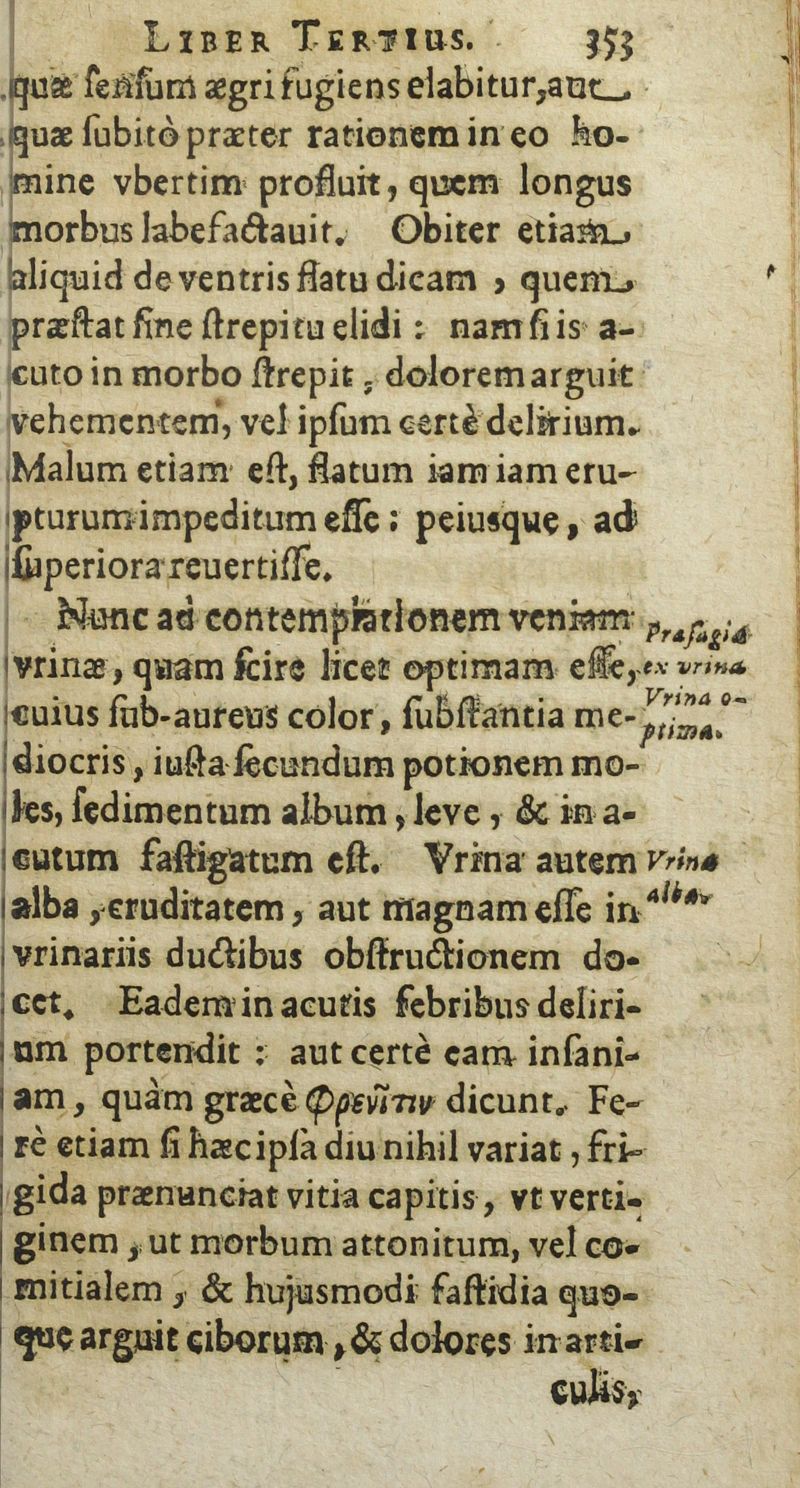 LIBER TERTIUS. 353
quæ ſenſum ægri fugiens elabitur, aut
quæ ſubitò præter rationem in eo ho-
mine vbertim profluit, quem longus
morbus labefactauit. Obiter etiam
aliquid de ventris flatu dicam, quem
præſtat ſine ſtrepitu elidi: nam ſi is a-
cuto in morbo ſtrepit, dolorem arguit
vehementem, vel ipſum certè delirium.
Malum etiam eſt, flatum iam iam eru-
pturum impeditum eſſe: peiusque, ad
ſuperiora reuertiſſe.
Nunc ad contemplationem veniam
Præſagia
vrinæ, quam ſcire licet optimam eſſe,
ex vrina
cuius ſub-aureus color, ſubſtantia me-
Vrina o-
ptima.
diocris, iuſta ſecundum potionem mo-
les, ſedimentum album, leve, & in a-
cutum faſtigatum eſt. Vrina autem
Vrina
alba, cruditatem, aut magnam eſſe in
alba.
vrinariis ductibus obſtructionem do-
cet. Eadem in acutis febribus deliri-
um portendit: aut certè eam inſani-
am, quàm græcè φρενῖτιν dicunt. Fe-
rè etiam ſi hæc ipſa diu nihil variat, fri-
gida prænunciat vitia capitis, vt verti-
ginem, ut morbum attonitum, vel co-
mitialem, & hujusmodi faſtidia quo-
que arguit ciborum, & dolores in arti-
culis,